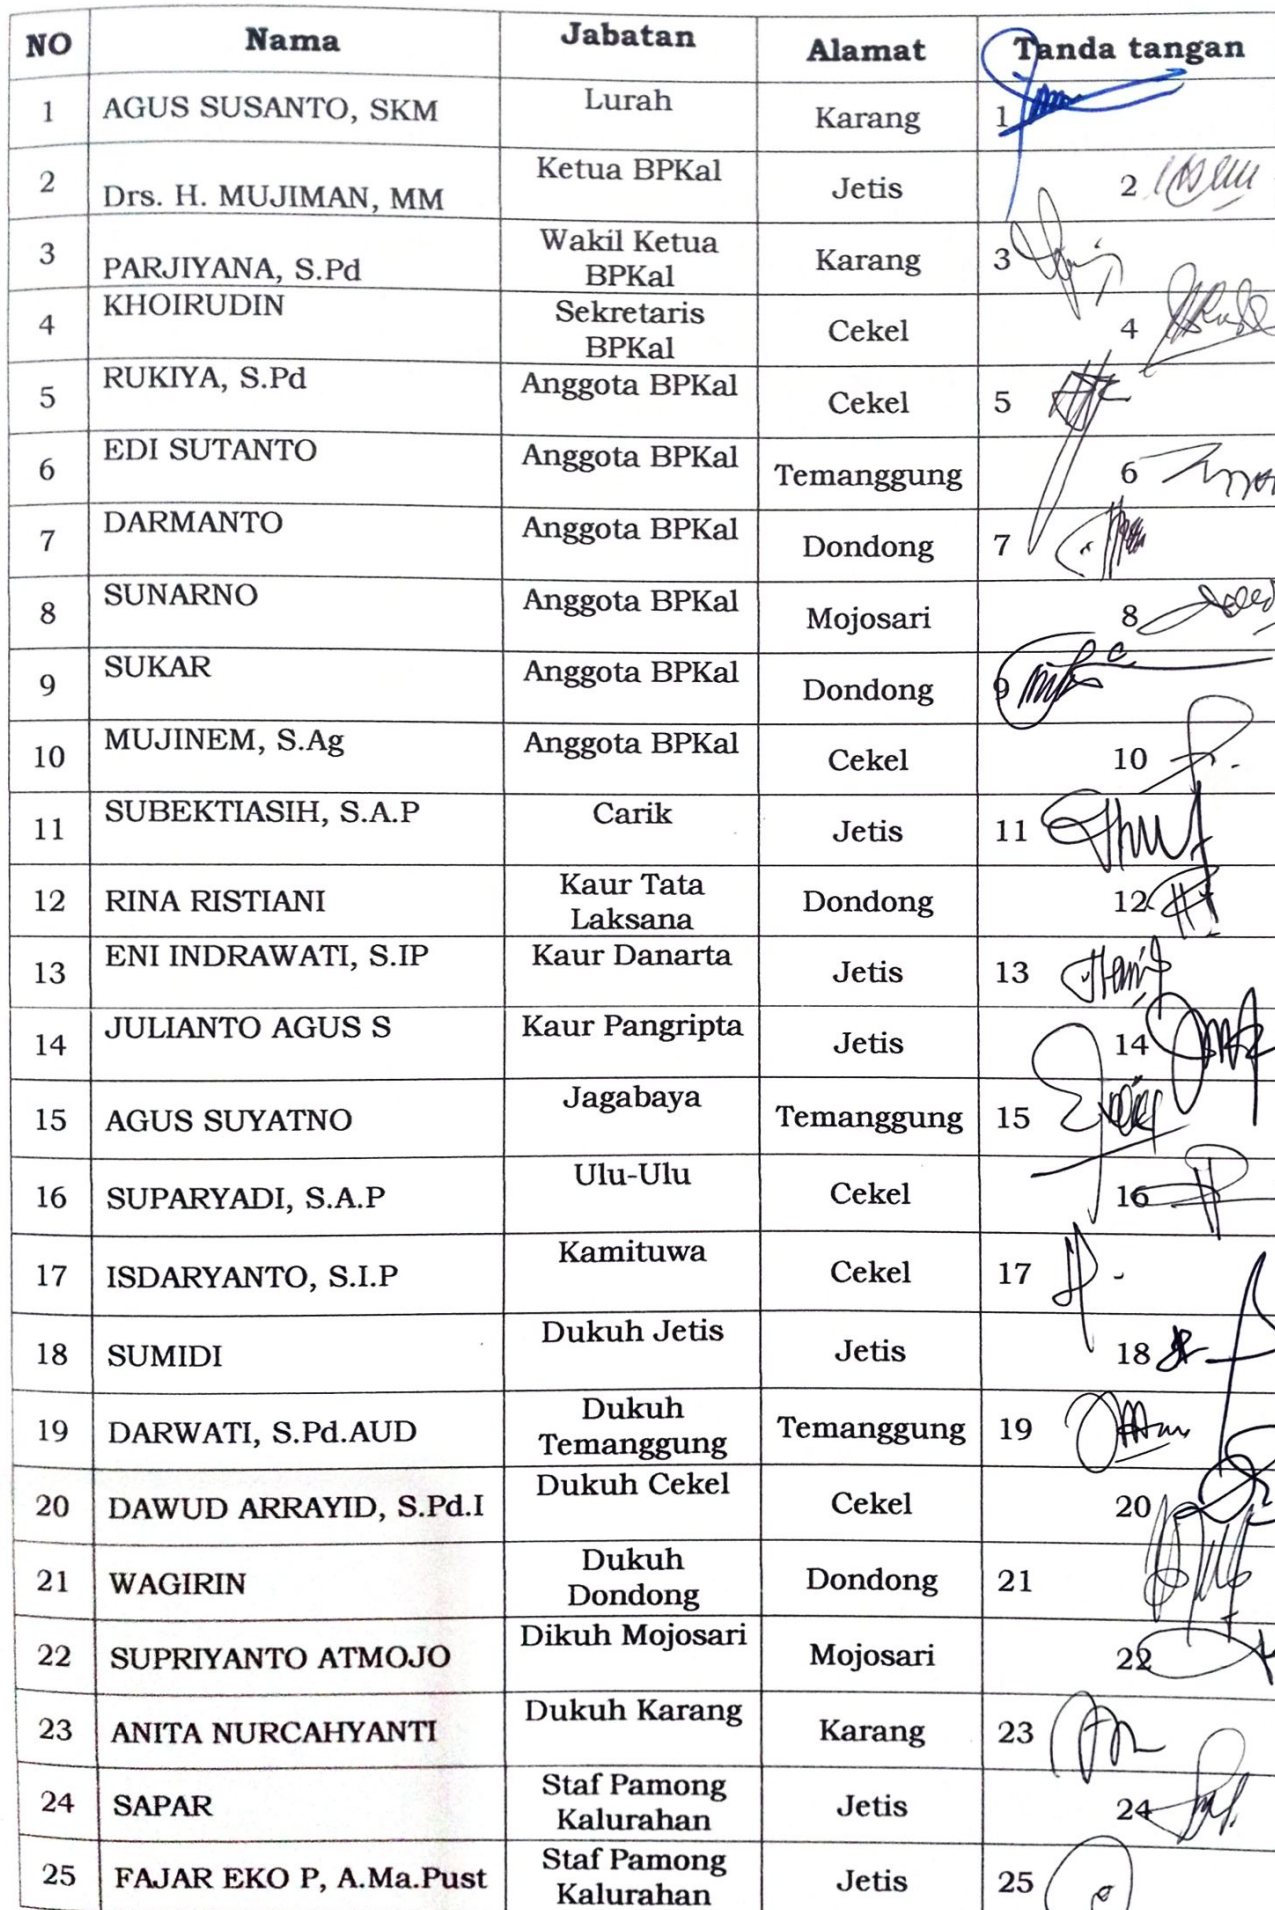 NO Nama Jabatan Alamat Tanda tangan
1 AGUS SUSANTO, SKM Lurah Karang 1
2 Drs. H. MUJIMAN, MM Ketua BPKal Jetis 2
3 PARJIYANA, S.Pd Wakil Ketua BPKal Karang 3
4 KHOIRUDIN Sekretaris BPKal Cekel 4
5 RUKIYA, S.Pd Anggota BPKal Cekel 5
6 EDI SUTANTO Anggota BPKal Temanggung 6
7 DARMANTO Anggota BPKal Dondong 7
8 SUNARNO Anggota BPKal Mojosari 8
9 SUKAR Anggota BPKal Dondong 9
10 MUJINEM, S.Ag Anggota BPKal Cekel 10
11 SUBEKTIASIH, S.A.P Carik Jetis 11
12 RINA RISTIANI Kaur Tata Laksana Dondong 12
13 ENI INDRAWATI, S.IP Kaur Danarta Jetis 13
14 JULIANTO AGUS S Kaur Pangripta Jetis 14
15 AGUS SUYATNO Jagabaya Temanggung 15
16 SUPARYADI, S.A.P Ulu-Ulu Cekel 16
17 ISDARYANTO, S.I.P Kamituwa Cekel 17
18 SUMIDI Dukuh Jetis Jetis 18
19 DARWATI, S.Pd.AUD Dukuh Temanggung Temanggung 19
20 DAWUD ARRAYID, S.Pd.I Dukuh Cekel Cekel 20
21 WAGIRIN Dukuh Dondong Dondong 21
22 SUPRIYANTO ATMOJO Dikuh Mojosari Mojosari 22
23 ANITA NURCAHYANTI Dukuh Karang Karang 23
24 SAPAR Staf Pamong Kalurahan Jetis 24
25 FAJAR EKO P, A.Ma.Pust Staf Pamong Kalurahan Jetis 25